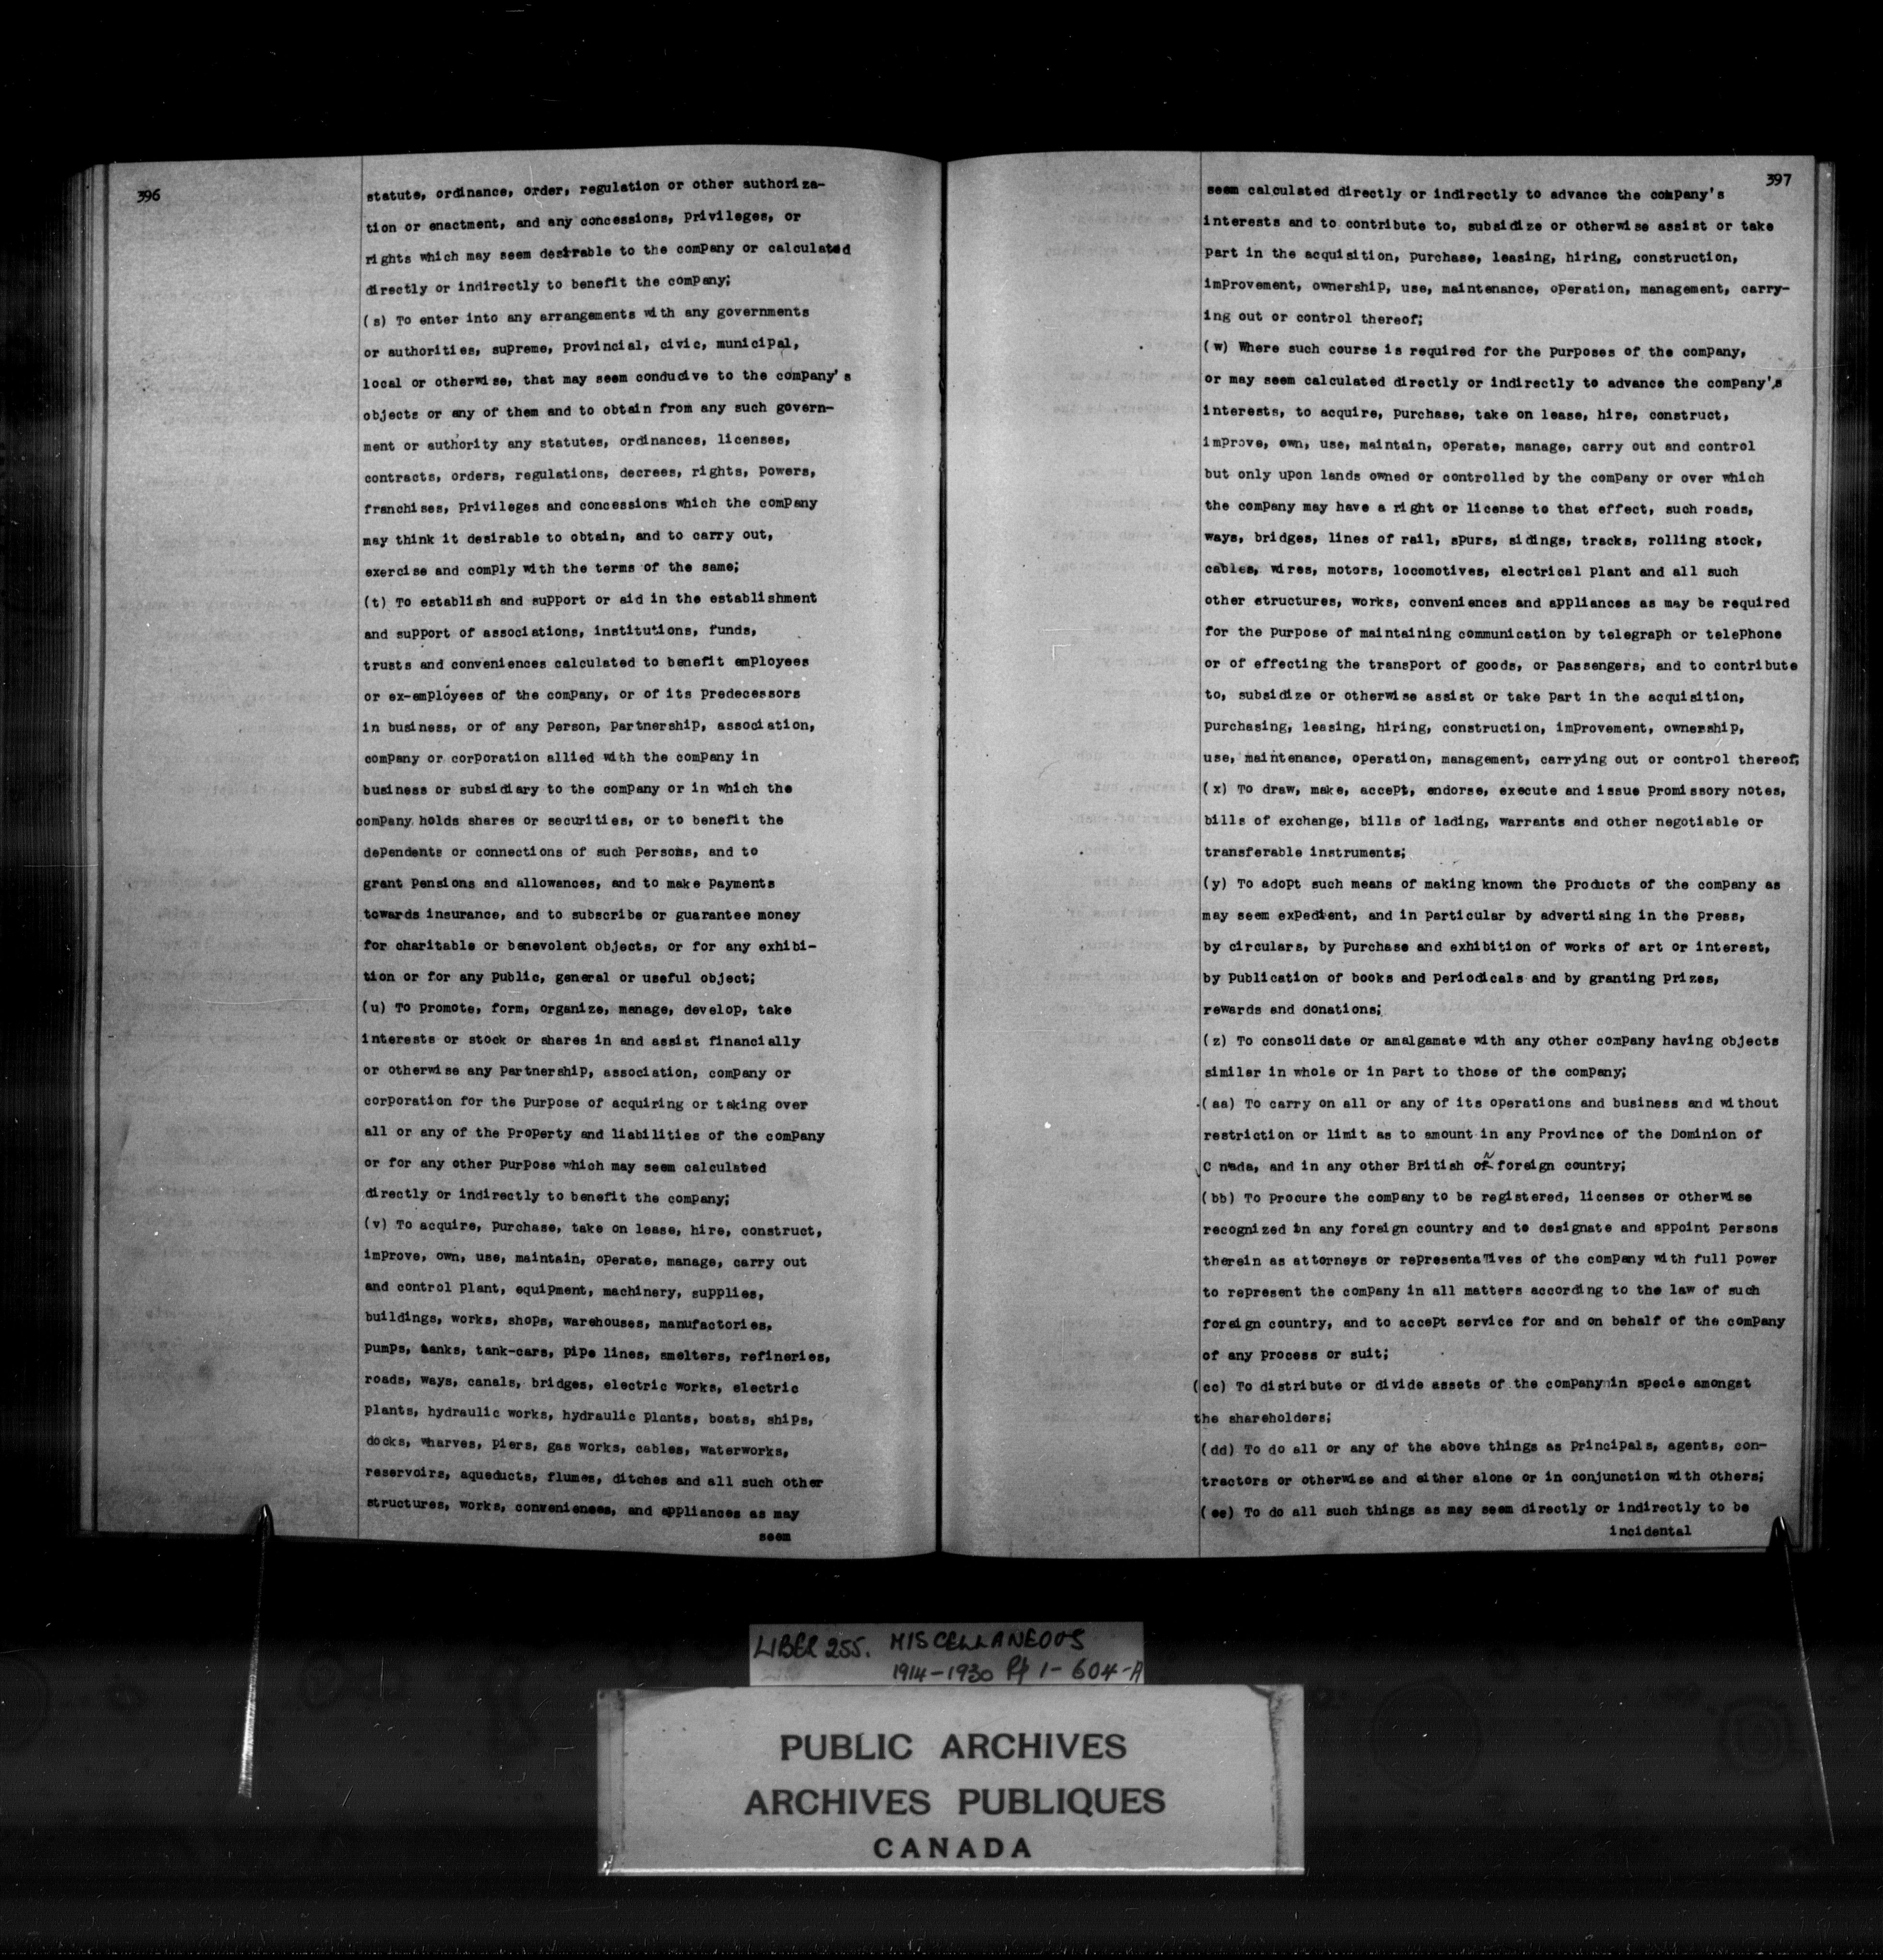 396
statute, ordinance, order, regulation or other authoriza-
tion or enactment, and any concessions, privileges, or
rights which may seem desirable to the company or calculated
directly or indirectly to benefit the company;
(s) To enter into any arrangements with any governments
or authorities, supreme, provincial, civic, municipal,
local or otherwise, that may seem conducive to the company's
objects or any of them and to obtain from any such govern-
ment or authority any statutes, ordinances, licenses,
contracts, orders, regulations, decrees, rights, powers,
franchises, privileges and concessions which the company
may think it desirable to obtain, and to carry out,
exercise and comply with the terms of the same;
(t) To establish and support or aid in the establishment
and support of associations, institutions, funds,
trusts and conveniences calculated to benefit employees
or ex-employees of the company, or of its predecessors
in business, or of any person, partnership, association,
company or corporation allied with the company in
business or subsidiary to the company or in which the
company holds shares or securities, or to benefit the
dependents or connections of such persons, and to
grant pensions and allowances, and to make payments
towards insurance, and to subscribe or guarantee money
for charitable or benevolent objects, or for any exhibi-
tion or for any public, general or useful object;
(u) To promote, form, organize, manage, develop, take
interests or stock or shares in and assist financially
or otherwise any partnership, association, company or
corporation for the purpose of acquiring or taking over
all or any of the property and liabilities of the company
or for any other purpose which may seem calculated
directly or indirectly to benefit the company;
(v) To acquire, purchase, take on lease, hire, construct,
improve, own, use, maintain, operate, manage, carry out
and control plant, equipment, machinery, supplies,
buildings, works, shops, warehouses, manufactories,
pumps, tanks, tank-cars, pipe lines, smelters, refineries,
roads, ways, canals, bridges, electric works, electric
plants, hydraulic works, hydraulic plants, boats, ships,
docks, wharves, piers, gas works, cables, waterworks,
reservoirs, aqueducts, flumes, ditches and all such other
structures, works, conveniences, and appliances as may
seem
397
seem calculated directly or indirectly to advance the company's
interests and to contribute to, subsidize or otherwise assist or take
part in the acquisition, purchase, leasing, hiring, construction,
improvement, ownership, use, maintenance, operation, management, carry-
ing out or control thereof;
(w) Where such course is required for the purposes of the company,
or may seem calculated directly or indirectly to advance the company's
interests, to acquire, purchase, take on lease, hire, construct,
improve, own, use, maintain, operate, manage, carry out and control
but only upon lands owned or controlled by the company or over which
the company may have a right or license to that effect, such roads,
ways, bridges, lines of rail, spurs, sidings, tracks, rolling stock,
cables, wires, motors, locomotives, electrical plant and all such
other structures, works, conveniences and appliances as may be required
for the purpose of maintaining communication by telegraph or telephone
or of effecting the transport of goods, or passengers, and to contribute
to, subsidize or otherwise assist or take part in the acquisition,
purchasing, leasing, hiring, construction, improvement, ownership,
use, maintenance, operation, management, carrying out or control thereof;
(x) To draw, make, accept, endorse, execute and issue promissory notes,
bills of exchange, bills of lading, warrants and other negotiable or
transferable instruments;
(y) To adopt such means of making known the products of the company as
may seem expedient, and in particular by advertising in the press,
by circulars, by purchase and exhibition of works of art or interest,
by publication of books and periodicals and by granting prizes,
rewards and donations;
(z) To consolidate or amalgamate with any other company having objects
similar in whole or in part to those of the company;
(aa) To carry on all or any of its operations and business and without
restriction or limit as to amount in any Province of the Dominion of
C nada, and in any other British or foreign country;
(bb) To procure the company to be registered, licenses or otherwise
recognized in any foreign country and to designate and appoint persons
therein as attorneys or representaTives of the company with full power
to represent the company in all matters according to the law of such
foreign country, and to accept service for and on behalf of the company
of any process or suit;
(cc) To distribute or divide assets of the company in specie amongst
the shareholders;
(dd) To do all or any of the above things as principals, agents, con-
tractors or otherwise and either alone or in conjunction with others;
(ee) To do all such things as may seem directly or indirectly to be
incidental
LIBER 255. MISCELLANEOUS
1914-1930 Pp 1-604-A
PUBLIC ARCHIVES
ARCHIVES PUBLIQUES
CANADA